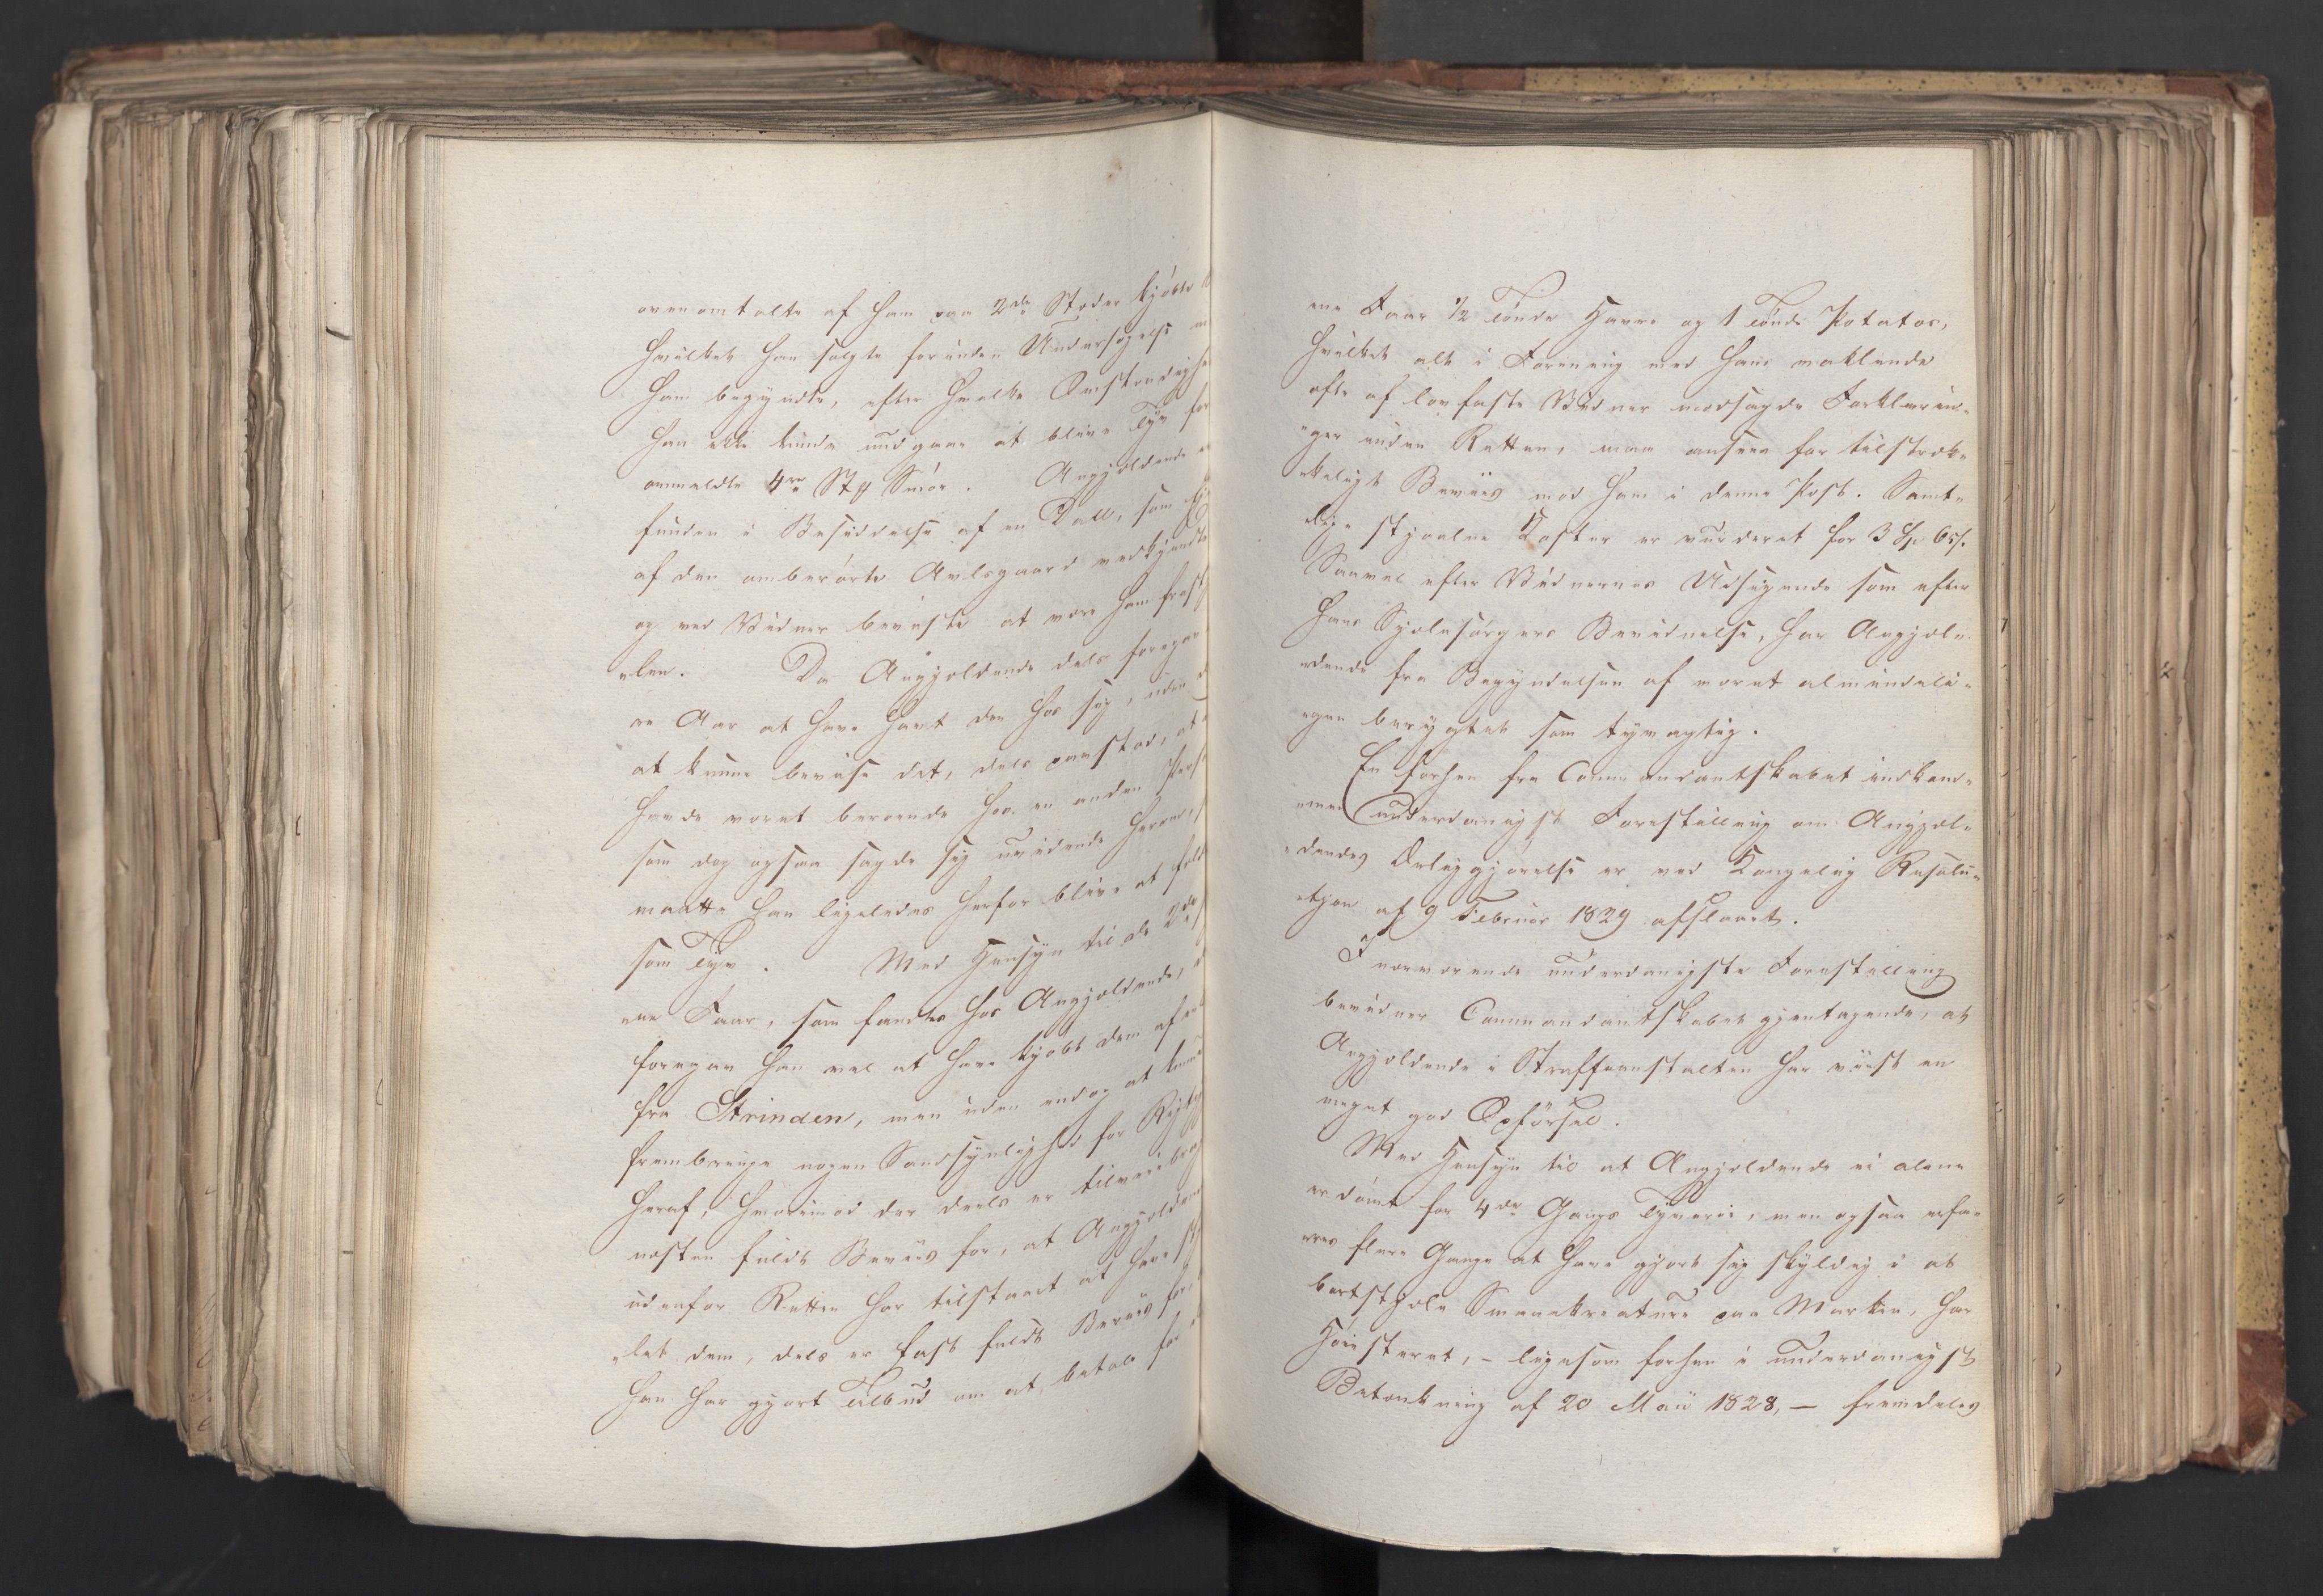 ovenomtalte af ham paa 2de Steder kjøbte
hvilket han solgte forinden Undersøgelse
ham begyndte, efter hvilke Omstændighe
han ikke kunde undgaae at blive Tyv for
anmeldte 4re St ℔ Smør. Angjældende
funden i Besiddelse af en Dall, som
af den omberørte Avlsgaard vedkjendte
og ved Vidner beviiste at være ham frastj
elen. Da Angjældende dels foregav
re Aar at have havt den hos sig, uden
at kunne bevise det, dels paastod, at
havde været beroende hos en anden Pers
som dog ogsaa sagde sig uvidende herom,
maatte han ligeledes herfor blive at
som Tyv. Med Hensyn til de 2de
ne Faar, som fandtes hos Angjældende,
foregav han vel at have kjøbt dem af en
fra Strinden, men uden endog at kunne
frembringe nogen Sandsynlighed for Rigtig
heraf, hvorimod der deels er tilveiebrag
næsten fuldt Beviis for, at Angjælden
udenfor Retten har tilstaaet at have stj
elet dem, dels er fast fuldt Beviis for,
han har gjort Tilbud om at betale for
ene Faar ½ Tønde Havre og 1 Tønde Potatos,
hvilket alt i Forening med hans vaklende
ofte af lovfaste Vidner modsagde Forklarin-
ger inden Retten, maa ansees for tilstræk-
keligt Beviis mod ham i denne Post. Samt-
lige stjaalne Koster er vurderet for 3 Sp. 65 s.
Saavel efter Vidnernes Udsigende som efter
hans Sjælesørgers Bevidnelse, har Angjæl-
dende fra Begyndelsen af været almindeli-
gen berygtet som tyvagtig.
En forhen fra Commandantskabet indkom-
men underdanigst Forestilling om Angjæl-
dendes Ørliggjørelse er ved Kongelig Resolu-
tjon af 9 Februar 1829 afslaaet.
I nærværende underdanigste Forestilling
bevidner Commandantskabet gjentagende, at
Angjældende i Straffeanstalten har viist en
meget god Opførsel.
Med Hensyn til at Angjældende ei alene
er dømt for 4de Gangs Tyverie, men ogsaa erfa-
res flere Gange at have gjort sig skyldig i at
bortstjæle Smaaekreature paa Marken, har
Høiesteret, – ligesom forhen i underdanigst
Betænkning af 20 Maii 1828, – fremdeles